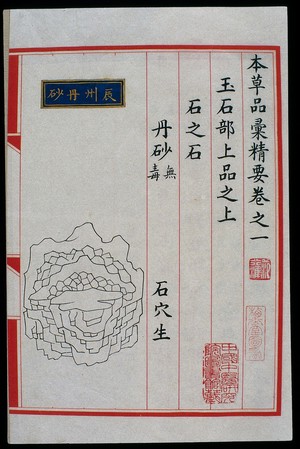 本草品彙精要卷之一
玉石部上品之上
石之石
丹砂 無毒
石穴生
辰州丹砂